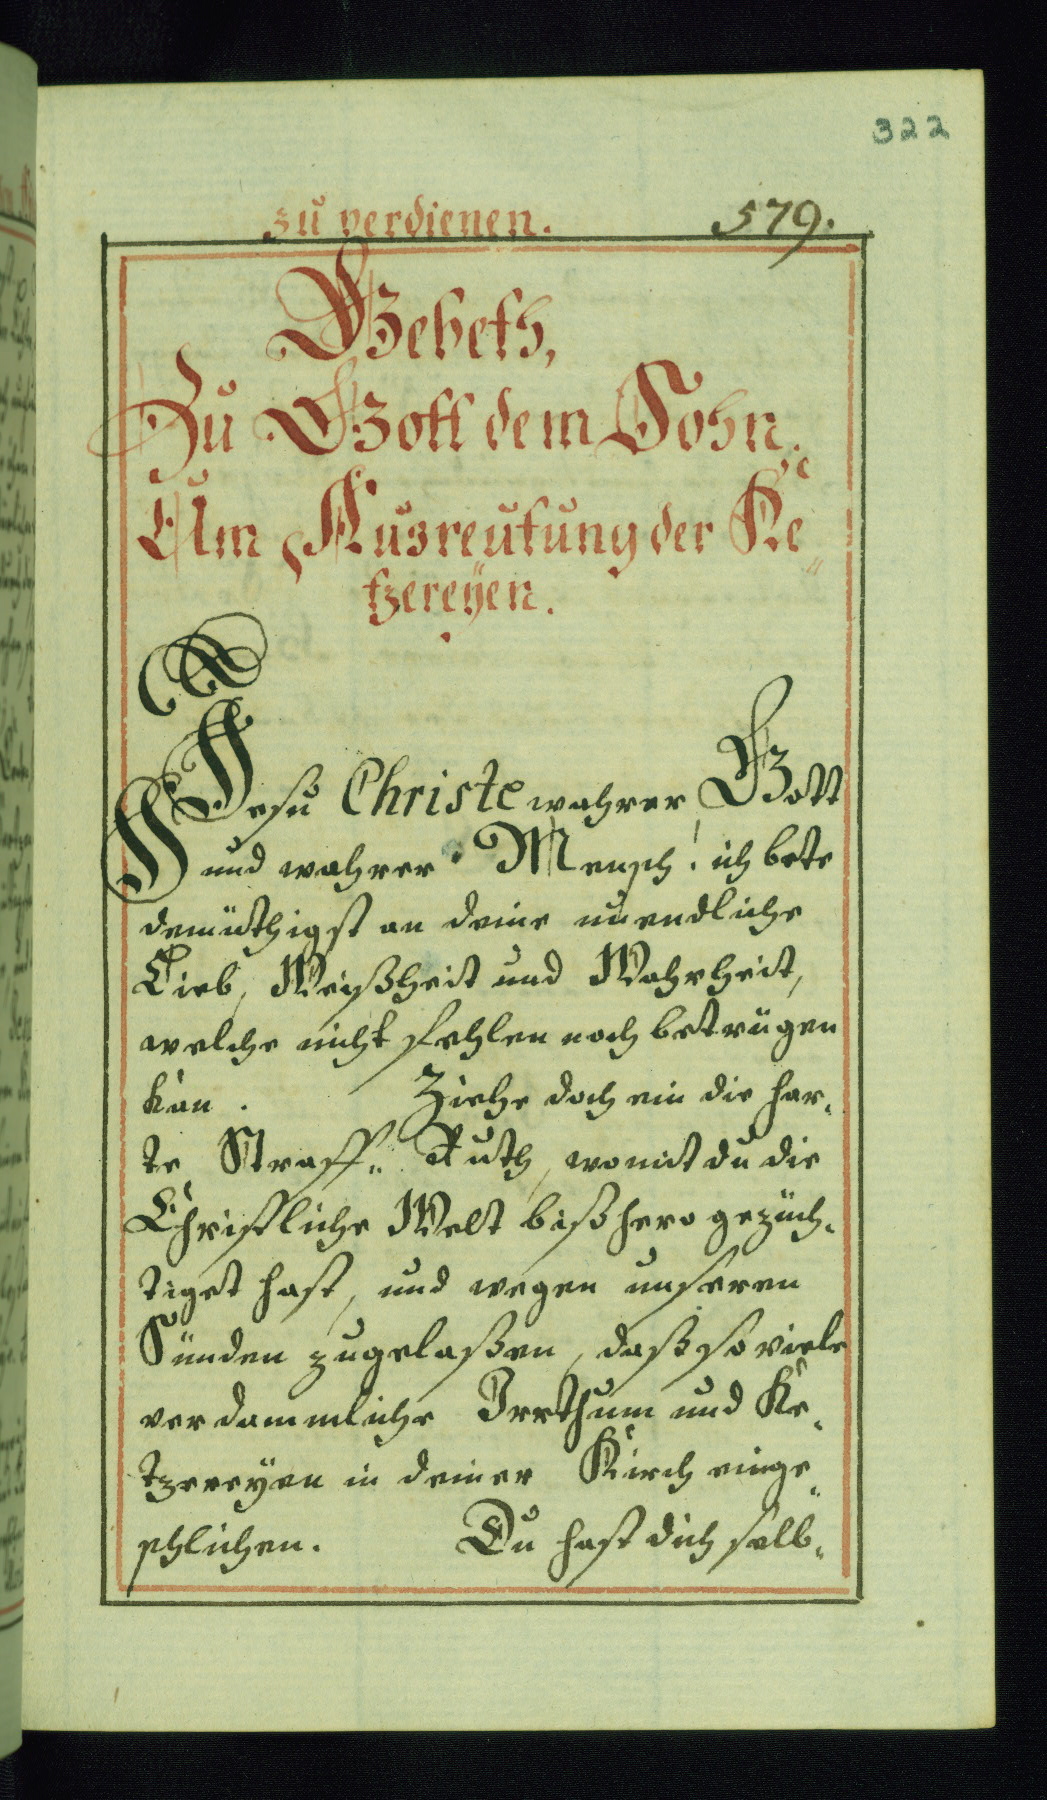 322
zu verdienen. 579.
Gebeth,
Zu Gott dem Sohn.
Um Ausreutung der Ke„
tzereÿen.
O Jesu Christe wahrer Gott
und wahrer Mensch! ich bete
demüthigst an deine unendliche
Lieb, Weißheit und Wahrheit,
welche nicht fehlen noch betrügen
kan. Ziehe doch ein die har„
te Straff„ Ruth, womit du die
Christliche Welt bißhero gezüch„
tiget hast, und wegen unseren
Sünden zugelaßen, daß so viele
verdammliche Irrthum und Ke„
tzereÿen in deiner Kirch einge„
schlichen. Du hast dich selb„